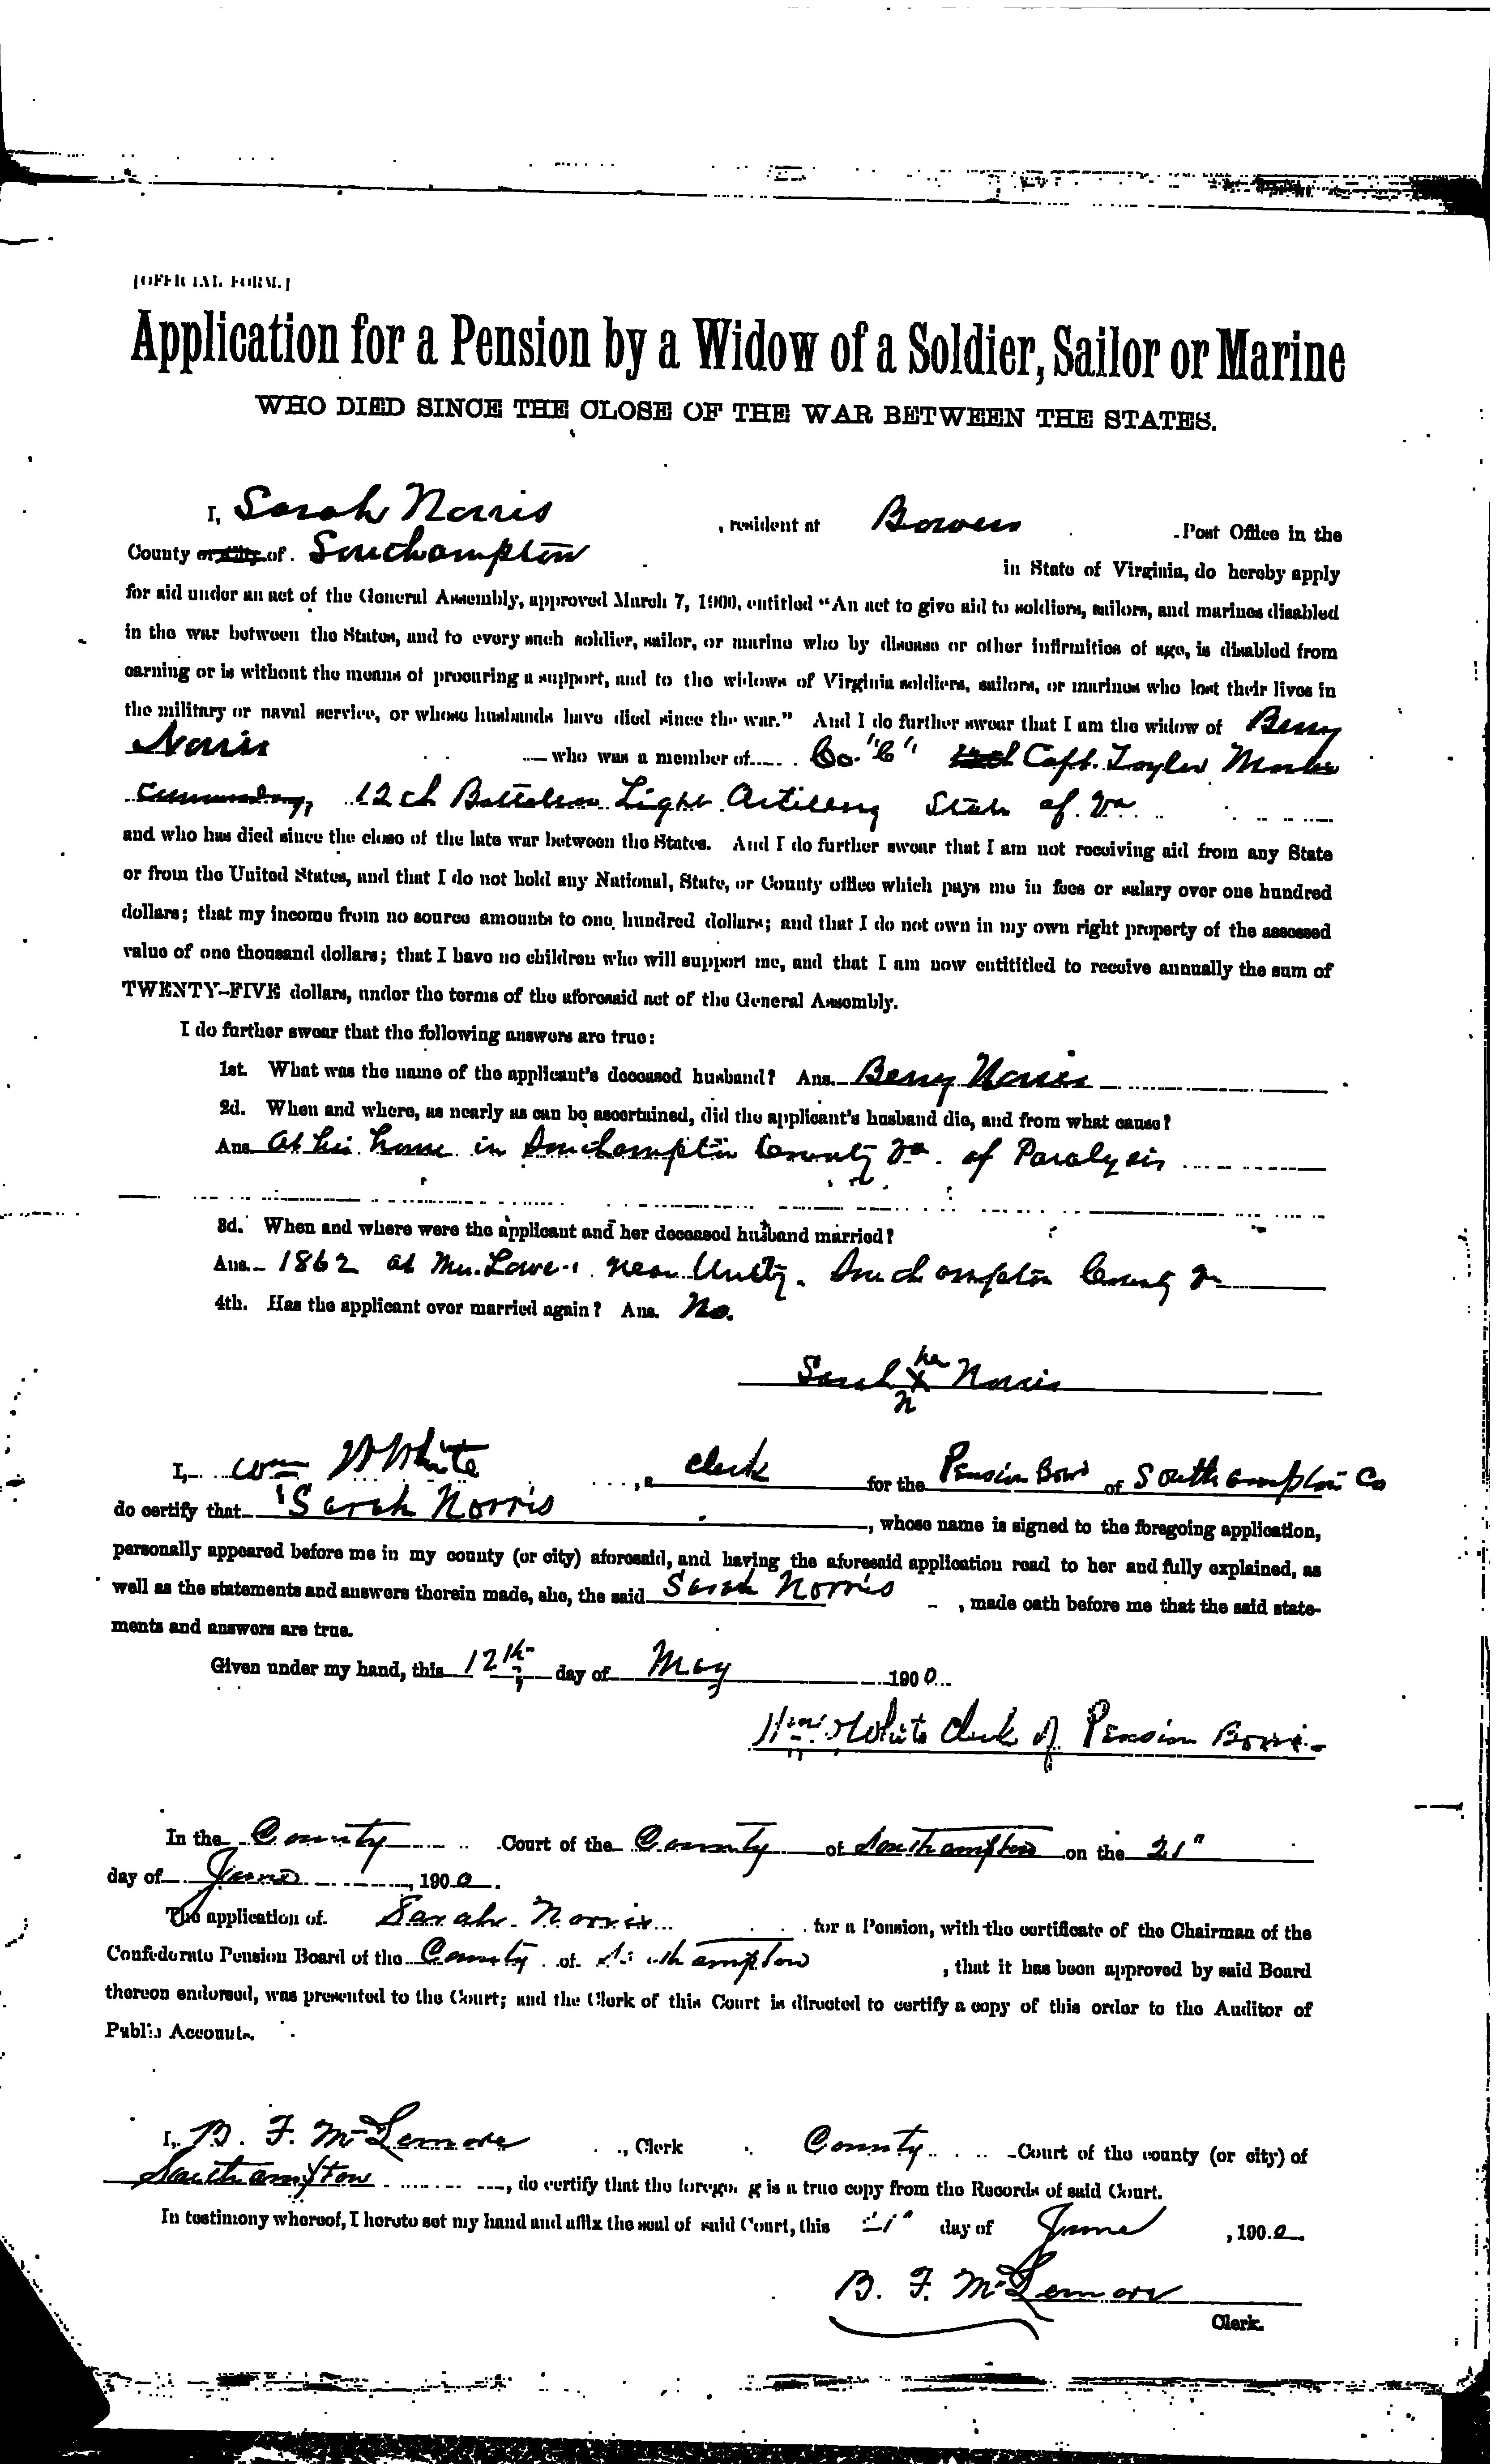 [OFFICIAL FORM.]
Application for a Pension by a Widow of a Soldier, Sailor or Marine
WHO DIED SINCE THE CLOSE OF THE WAR BETWEEN THE STATES.
I, Sarah Norris, resident at Bowers Post Office in the
County or City of Southampton in State of Virginia, do hereby apply
for aid under an act of the General Assembly, approved March 7, 1900, entitled “An act to give aid to soldiers, sailors, and marines disabled
in the war between the States, and to every such soldier, sailor, or marine who by disease or other infirmities of age, is disabled from
earning or is without the means of procuring a support, and to the widows of Virginia soldiers, sailors, or marines who lost their lives in
the military or naval service, or whose husbands have died since the war.” And I do further swear that I am the widow of Berry
Norris who was a member of Co. "C" Capt. Taylor
12th Battalion Light Artillery State of Va
and who has died since the close of the late war between the States. And I do further swear that I am not receiving aid from any State
or from the United States, and that I do not hold any National, State, or County office which pays me in fees or salary over one hundred
dollars; that my income from no source amounts to one hundred dollars; and that I do not own in my own right property of the assessed
value of one thousand dollars; that I have no children who will support me, and that I am now entititled to receive annually the sum of
TWENTY-FIVE dollars, under the terms of the aforesaid act of the General Assembly.
I do further swear that the following answers are true:
1st. What was the name of the applicant's deceased husband? Ans. Berry Norris
2d. When and where, as nearly as can be ascertained, did the applicant's husband die, and from what cause?
Ans. At his home in Southampton County Va. of Paralysis
3d. When and where were the applicant and her deceased husband married?
Ans. 1862 at near Unity. Southampton County Va
4th. Has the applicant ever married again? Ans. No.
Sarah her X Norris
I, Wm White, a Clerk for the Pension Bord of Southampton Co
do certify that Sarah Norris, whose name is signed to the foregoing application,
personally appeared before me in my county (or city) aforesaid, and having the aforesaid application read to her and fully explained, as
well as the statements and answers therein made, she, the said Sarah Norris, made oath before me that the said state-
ments and answers are true.
Given under my hand, this 12th day of May 1900
White Clerk of Pension Bord
In the County Court of the County of Southampton on the 21"
day of June, 1900.
The application of Sarah Norris for a Pension, with the certificate of the Chairman of the
Confederate Pension Board of the County of Southampton, that it has been approved by said Board
thereon endorsed, was presented to the Court; and the Clerk of this Court is directed to certify a copy of this order to the Auditor of
Public Accounts.
I, B. F. McLemore, Clerk County Court of the county (or city) of
Southampton, do certify that the foregoing is a true copy from the Records of said Court.
In testimony whereof, I hereto set my hand and affix the seal of said Court, this 21" day of June, 1900.
B. F. McLemore
Clerk.